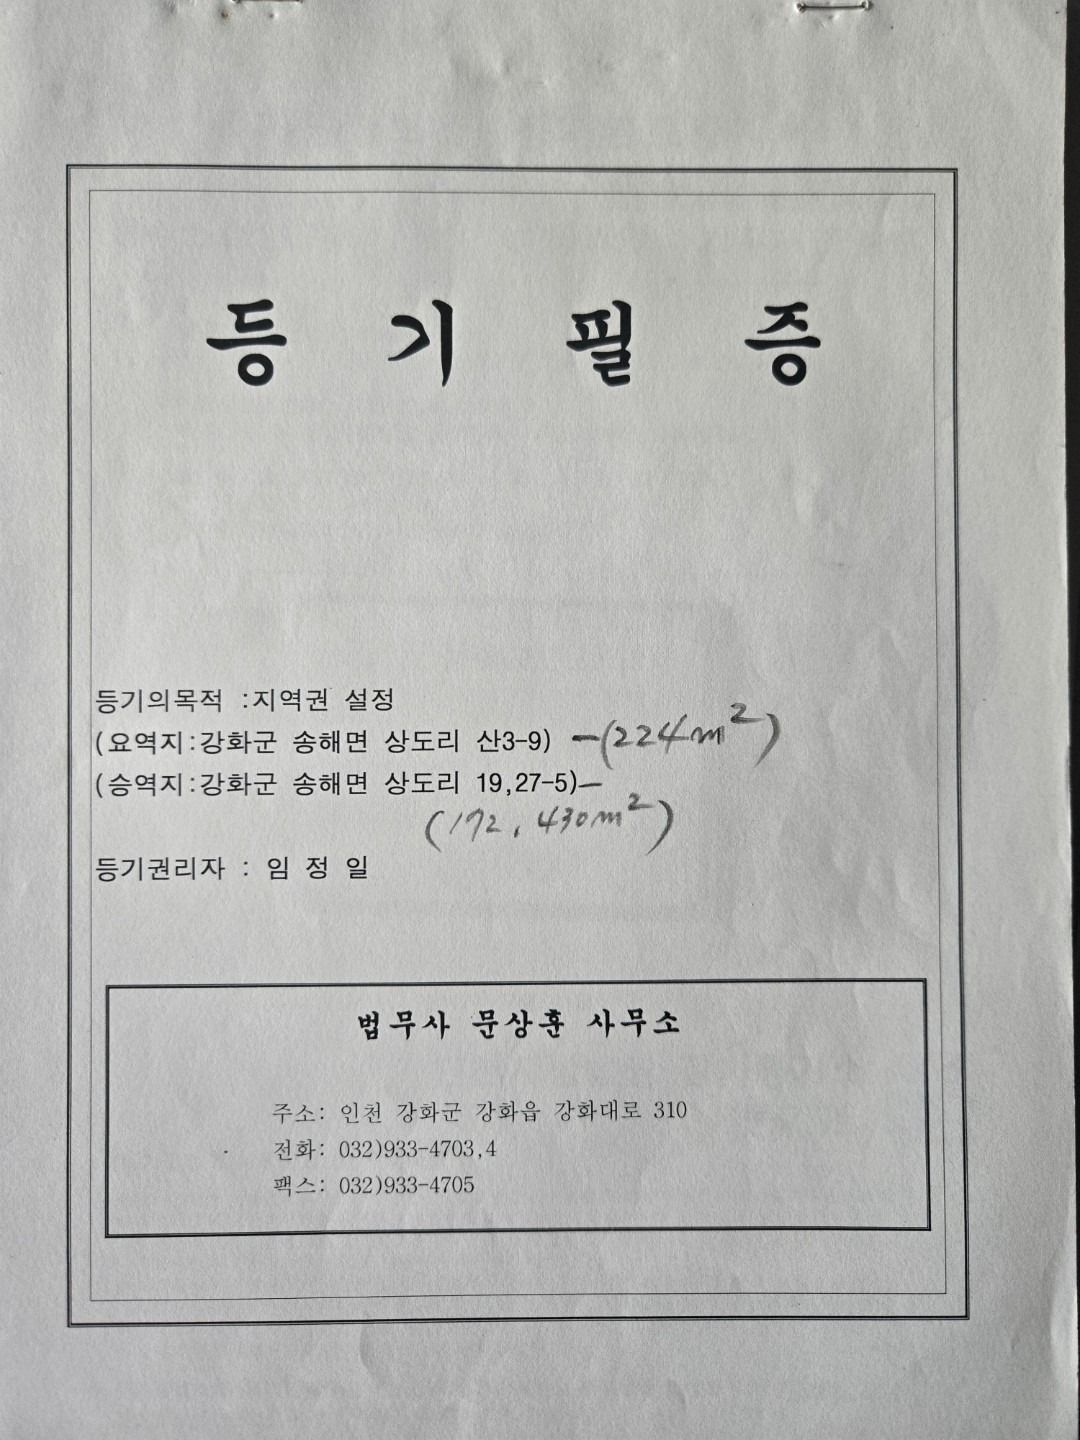 등 기 필 증
등기의목적 :지역권 설정
(요역지:강화군 송해면 상도리 산3-9) -(224m²)
(승역지:강화군 송해면 상도리 19,27-5)-
(172, 430m²)
등기권리자 : 임 정 일
법무사 문상훈 사무소
주소: 인천 강화군 강화읍 강화대로 310
전화: 032)933-4703,4
팩스: 032)933-4705